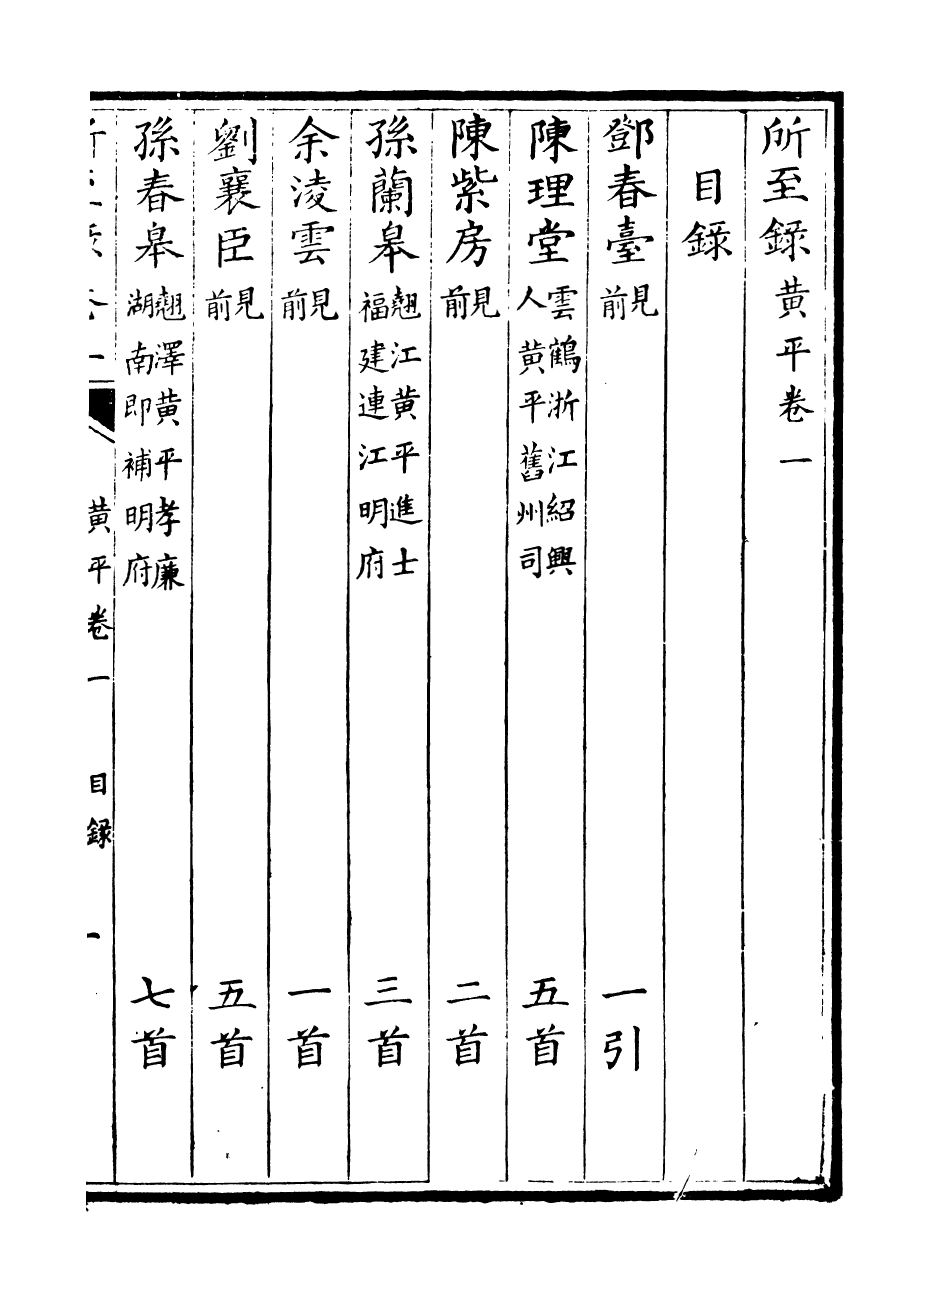 所至錄黄平卷一
目錄
鄧春臺見前 一引
陳理堂雲鶴浙江紹興人黄平舊州司 五首
陳紫房見前 二首
孫蘭皋翹江黄平進士福建連江明府 三首
余淩雲見前 一首
劉襄臣見前 五首
孫春皋翹澤黄平孝廉湖南即補明府 七首
黄平卷一 目錄 一